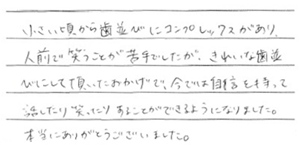 小さい頃から歯並びにコンプレックスがあり、
人前で笑うことが苦手でしたが、きれいな歯並
びにして頂いたおかげで、今では自信を持って
話したり笑ったりすることができるようになりました。
本当にありがとうございました。